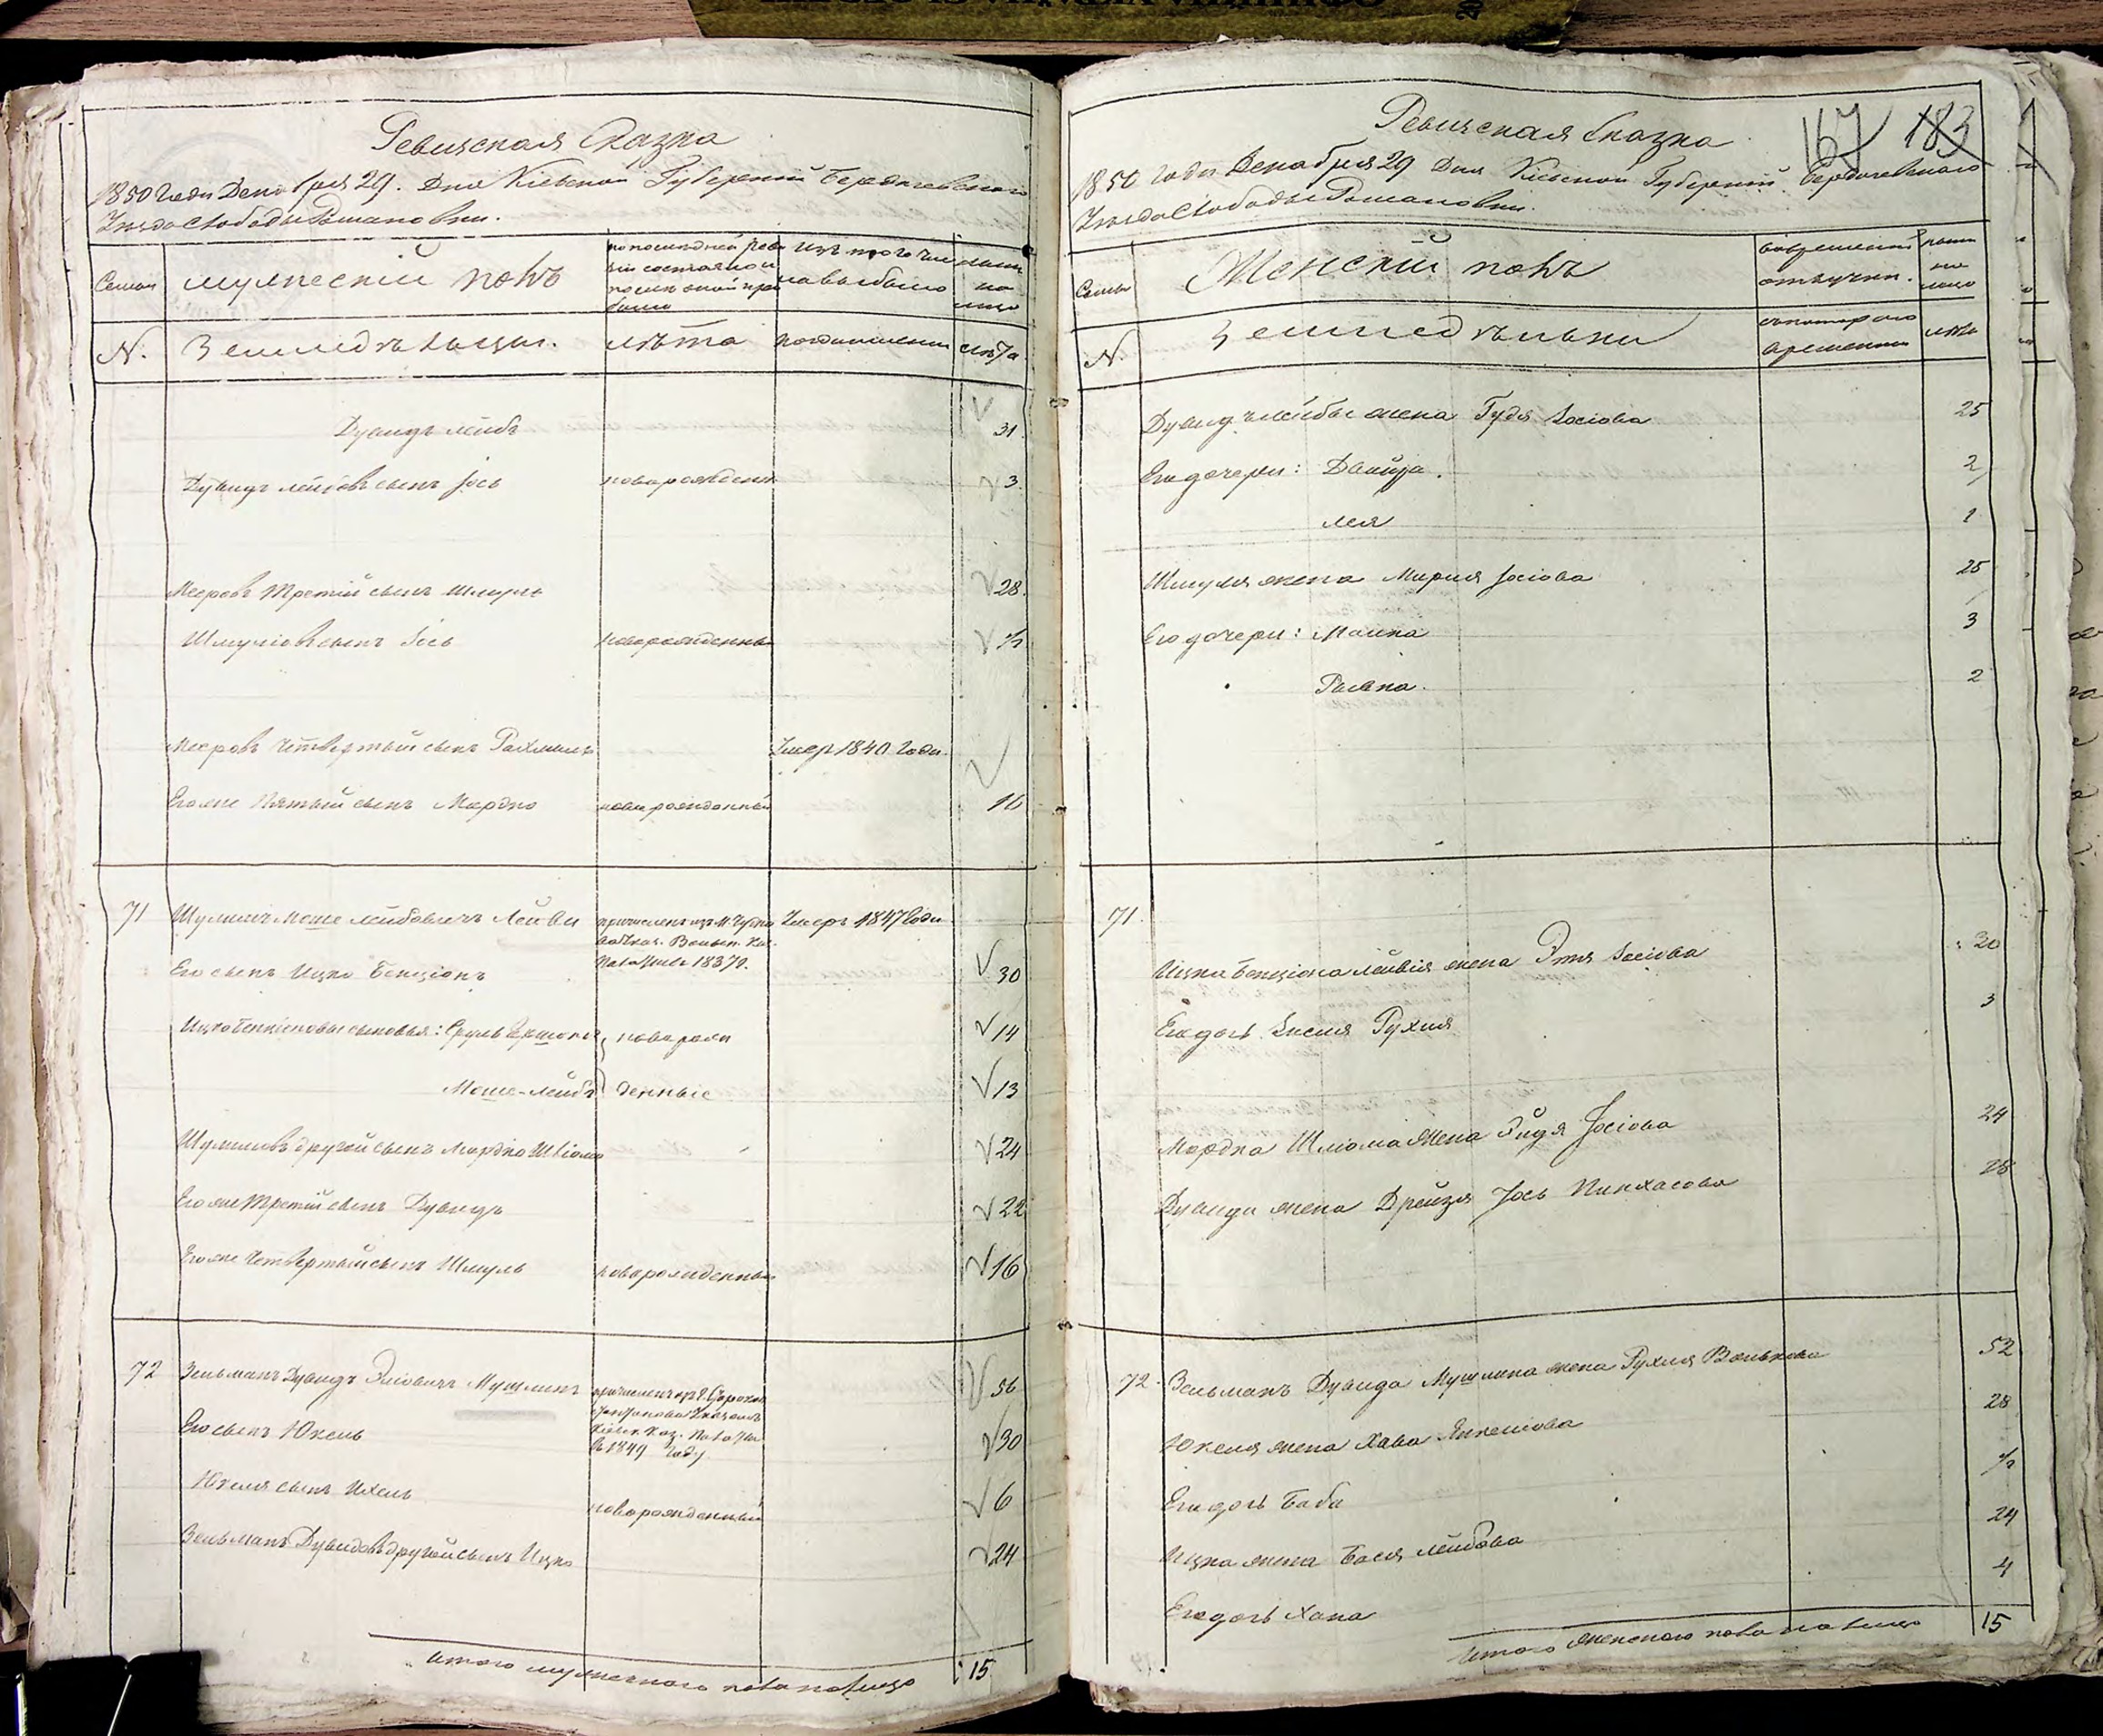 Ревизская Сказка
1850 Года Декабря 29. Дня Кіевской Губерніи Бердичевского
Уезда Слободы Романовки.
Семьи
мужескій полъ
по последней реви
зіи состояло и
после оной при
было
изъ того чис
ла выбыло
ныне
на
лицо
N.
Земледельцы.
лѣта
когда именно
лѣта
Дувидъ Лейбъ
31
Дувидъ Лейбовъ сынъ Іось
новорожденн
3
Мееровъ третій сынъ Шмуль
28
Шмулёвъ сынъ Іось
новорожденны
½
Мееровъ четвертый сынъ Рахмиль
Умеръ 1840 Года
Его же пятый сынъ Мордко
новорожденный
16
71
Шулимъ Моше Лейбовичъ Лейви
Умеръ 1847 Года
причисленъ изъ М. Чудно
Палаты 1837 г.
Его сынъ Ицко Бенціонъ
30
Ицко Бенціоновы сыновья: Сруль Гершонъ
новорож
14
Моше-Лейбъ
денные
13
Шулимовъ другой сынъ Мордко Шліома
24
Его же третій сынъ Дувидъ
22
Его же четвертый сынъ Шмуль
новорожденный
16
72
Зельманъ Дувидъ Эліовичъ Мушлинъ
56
Кіевск. Каз. Палаты
въ 1849 году
Его сынъ Юкель
30
Юкеля сынъ Ихель
новорожденный
6
Зельманъ Дувидовъ другой сынъ Ицко
24
Итого мужескаго пола на лицо
15
Ревизская Сказка
167 183
1850 Года Декабря 29 Дня Кіевской Губерніи Бердичевского
Уезда Слободы Романовки.
Семьи
Женскій полъ
во временной
отлучке.
ныне
на
лицо
N.
Земледельцы
съ котораго
времени
лѣта
Дувидъ Лейбы жена Гудя Іосіова
25
Его дочери: Двойра.
2
Лея
1
Шмуля жена Мирия Іосіова
25
Его дочери: Малка
3
2
71.
Ицка Бенціона Лейвія жена Этя Іосіова
30
Его дочь Енеля Рухля
3
Мордка Шліома жена Эйдя Іосіова
24
Дувида жена Дрейзя Іось Пинхасова
28
72.
Зельманъ Дувида Мушлина жена Рухля Волькова
52
Юкеля жена Хава Янкеліова
28
Его дочь Баба
½
Ицка жена Бася Лейбова
24
Его дочь Хана
4
Итого женскаго пола на лицо
15